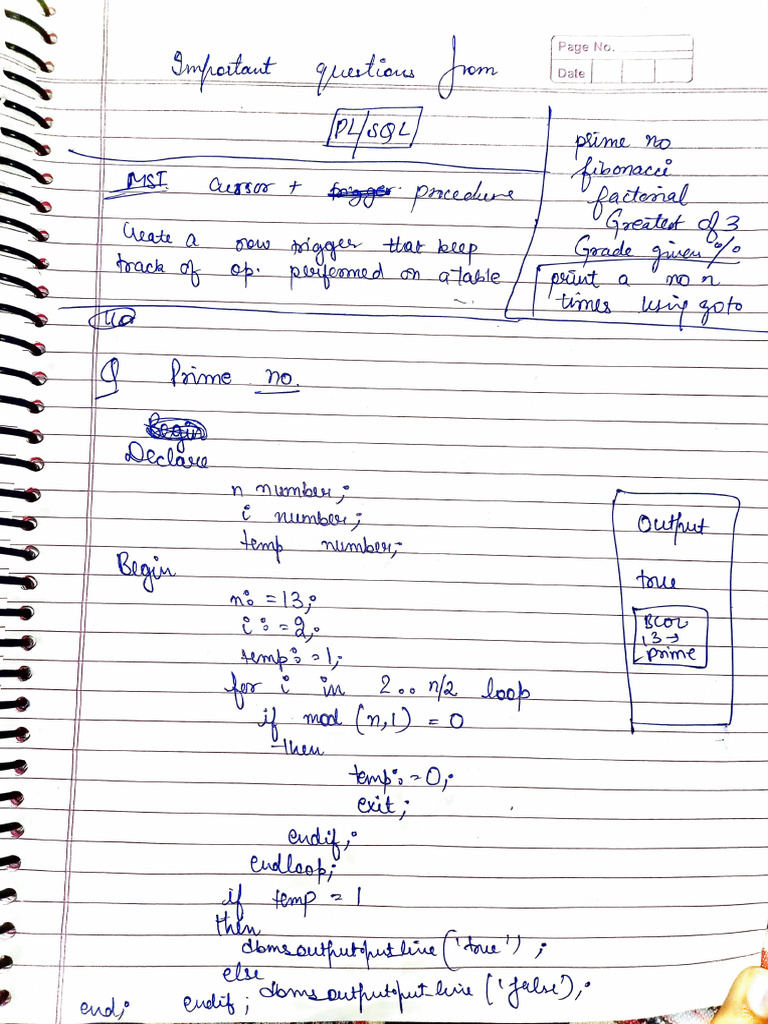 Important questions from
Page No.
Date
PL/SQL
MST Cursor + procedure
Create a row trigger that keep
track of op. performed on a table
prime no
fibonacci
factorial
Greatest of 3
Grade given %
print a no n
times using goto
Q Prime no.
Begin
Declare
n number;
i number;
temp number;
Begin
n:=13;
i:=2;
temp:=1;
for i in 2..n/2 loop
if mod (n,1) = 0
then
temp:=0;
exit;
endif;
endloop;
if temp = 1
then
dbmsoutputoput-line ('true');
else
dbmsoutputoput-line ('false');
end; endif;
Output
true
BCOZ
13→
prime